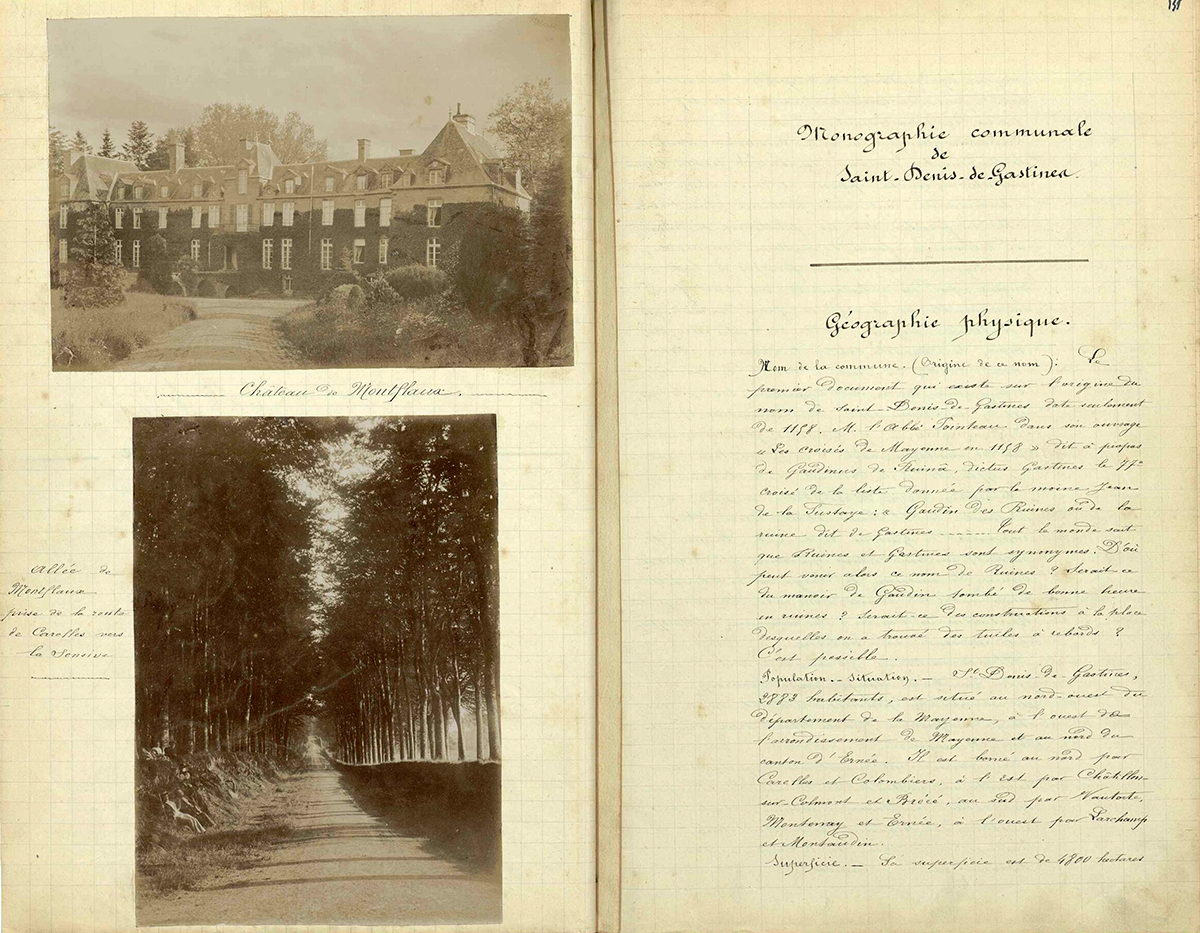 Château de Montflaux.
Allée de
Montflaux
prise de la route
de Carelles vers
la Sensive
Monographie communale
de
Saint-Denis-de-Gastines.
Géographie physique.
Nom de la commune. (Origine de ce nom): Le
premier document qui existe sur l'origine du
nom de Saint-Denis-de-Gastines date seulement
de 1158. M. l'Abbé Pointeau dans son ouvrage
« Les croisés de Mayenne en 1158 » dit à propos
de Gaudinus de Ruinâ, dictus Gastines le 77e
croisé de la liste donnée par le moine Jean
de la Fustaye: « Gaudin des Ruines ou de la
ruine dit de Gastines ........ Tout le monde sait
que Ruines et Gastines sont synonymes. D'où
peut venir alors ce nom de Ruines? Serait-ce
du manoir de Gaudin tombé de bonne heure
en ruines? Serait-ce des constructions à la place
desquelles on a trouvé des tuiles à rebords?
C'est possible.
Population.- Situation.- St Denis-de-Gastines,
2883 habitants, est situé au nord-ouest du
département de la Mayenne, à l'ouest de
l'arrondissement de Mayenne et au nord du
canton d'Ernée. Il est borné au nord par
Carelles et Colombiers, à l'Est par Châtillon-
sur-Colmont et Brécé, au sud par Vautorte,
Montenay et Ernée, à l'ouest par Larchamp
et Montaudin.
Superficie.- Sa superficie est de 4800 hectares